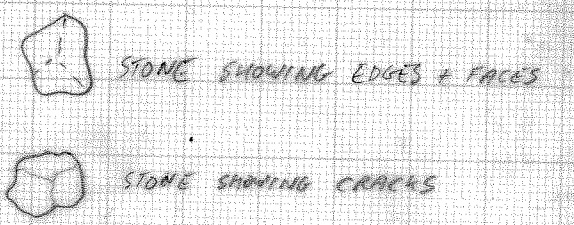 STONE SHOWING EDGES + FACES
STONE SHOWING CRACKS